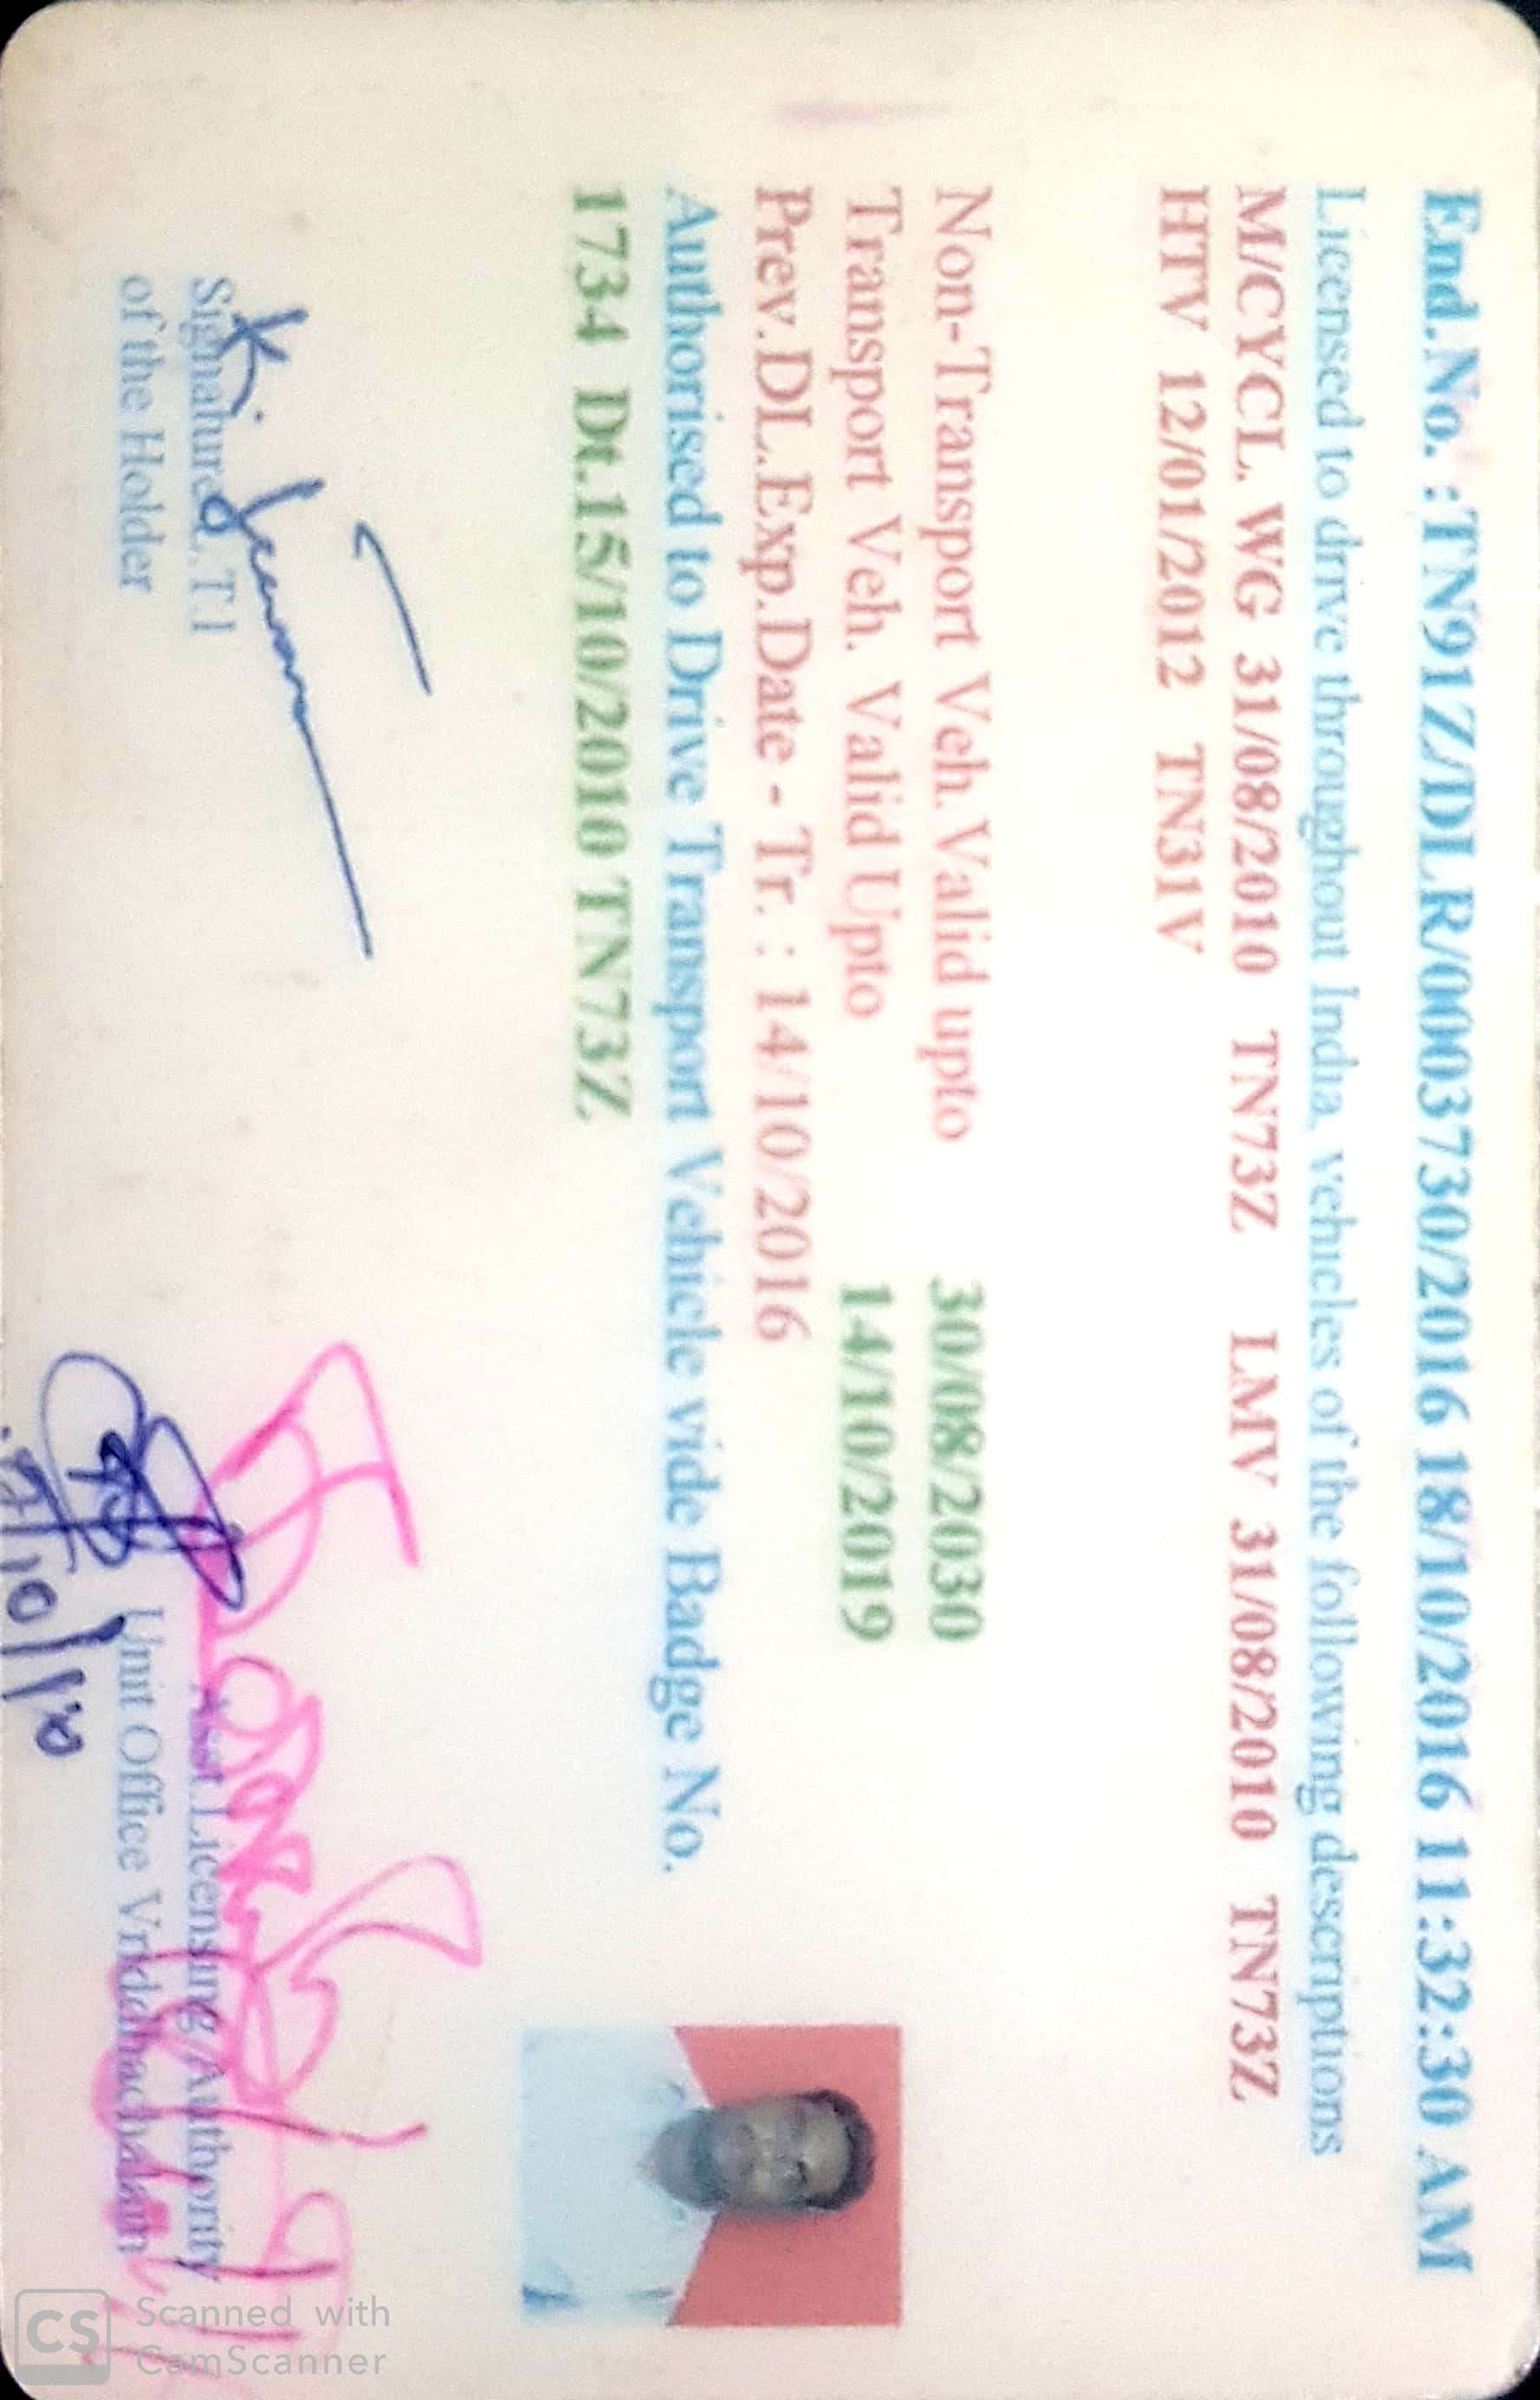 End.No. :TN91Z/DLR/0003730/2016 18/10/2016 11:32:30 AM
Licensed to drive throughout India, vehicles of the following descriptions
M/CYCL. WG 31/08/2010 TN73Z LMV 31/08/2010 TN73Z
HTV 12/01/2012 TN31V
Non-Transport Veh. Valid upto 30/08/2030
Transport Veh. Valid Upto 14/10/2019
Prev.DL.Exp.Date - Tr. : 14/10/2016
Authorised to Drive Transport Vehicle vide Badge No.
1734 Dt.15/10/2010 TN73Z
Signature/L.T.I
of the Holder
Asst.Licensing Authority
Unit Office Vriddhachalam
CS Scanned with
CamScanner